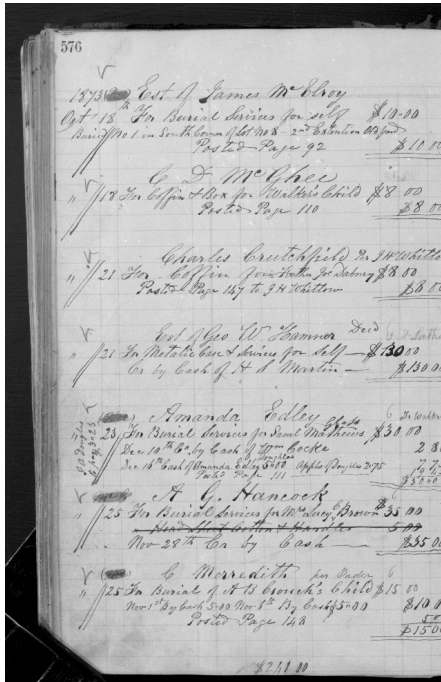 576
1873 Est of James McElroy
Oct 18th For Burial Services for self $10.00
Buried No 1 in South Corner of Lot No 8 - 2nd Extention Old
Posted Page 92 $10.00
C D McGhee
" 18 For Coffin & Box for Walker's Child $8 00
Posted Page 110 $8 00
Charles Crutchfield Per J H Whitlow
" 21 For Coffin for Joe Dabney $8 00
Posted Page 147 to J H Whitlow $8 00
Est of Geo W Hamner Decd
" 21 For Metalic Case & Services for self $130 00
Cr by Cash of H S Martin $130.00
Amanda Edley 6 Per Walker
" 23 For Burial Services for Saml Mathews $30.00
Dec 10th Cr by Cash of Cocke 2
Dec 15th Cash of Amanda Edley 5.00 2.75
Posted Page 111 $30.00
A. G. Hancock
" 25 For Burial Services for Mrs Lucy C Brown $35 00
5.00
Nov 28th Cr by Cash $35 00
C Merredith per 6
" 25 For Burial of Child $15 00
Nov 1st By Cash 5.00 Nov 5th By Cash $5.00 $10 0
Posted Page 148 5
$15 0
$241 00